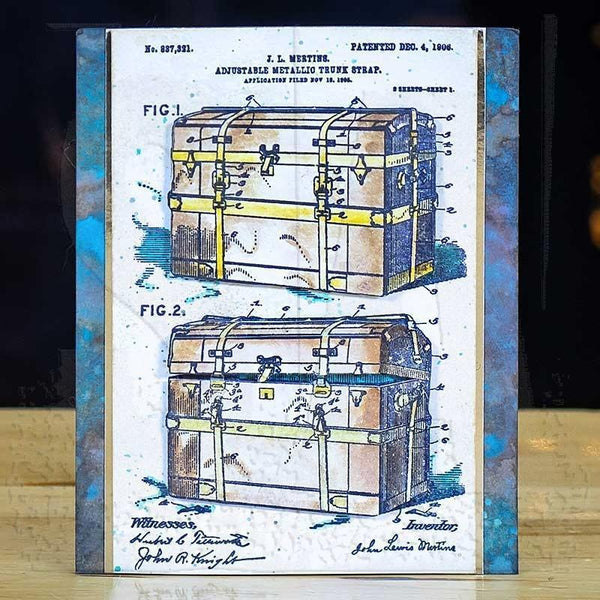 No. 837,321.
PATENTED DEC. 4, 1906.
J. L. MERTINS.
ADJUSTABLE METALLIC TRUNK STRAP.
APPLICATION FILED NOV 18. 1905.
2 SHEETS—SHEET 1.
FIG. 1.
FIG. 2.
Witnesses,
Inventor,
John R. Knight
John Lewis Mertins